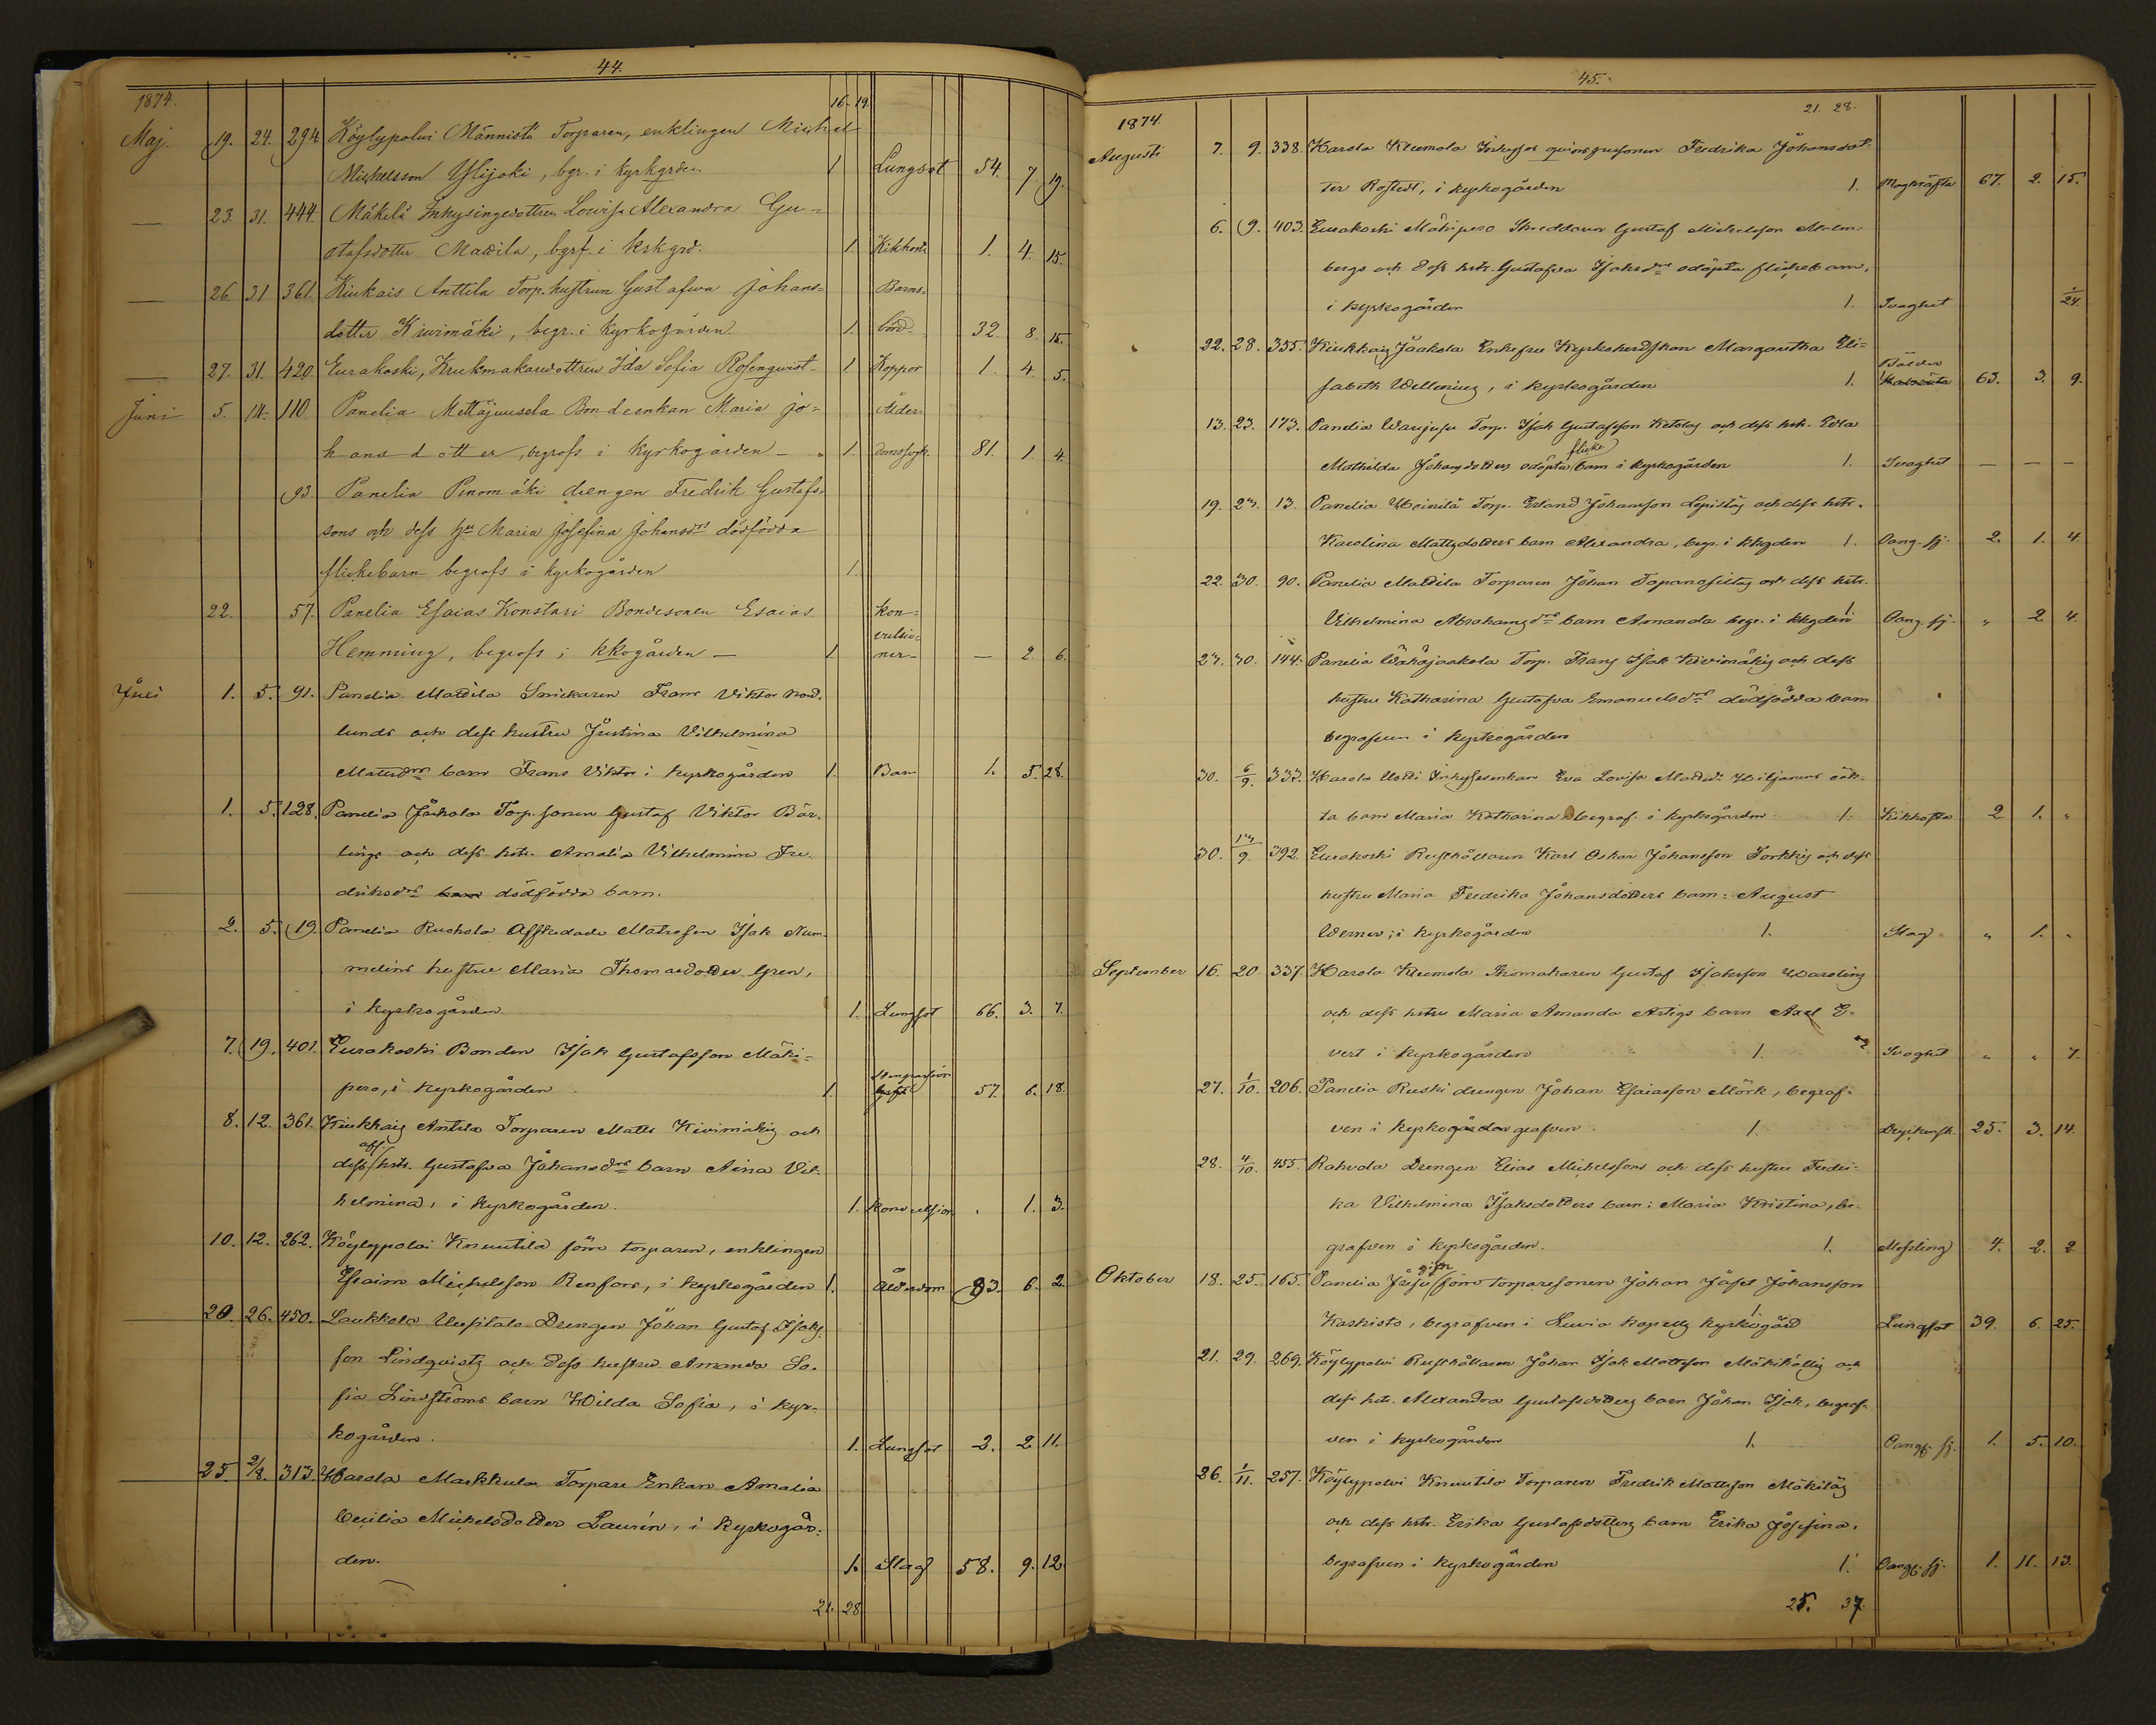 44.
1874.
16. 19.
Maj. 19. 24. 294. Köylypolvi Männistö Torparen, enklingen Michel
Michelsson Ylijoki, bgr. i kyrkgrden 1 Lungsot 54. 7. 19.
— 23. 31. 444. Mäkelä Inhysingedottren Lovisa Alexandra Gu-
stafsdotter Mattila, bgrf. i krkgrd. 1. Kikhosta 1. 4. 15.
— 26. 31 361. Kiukais Anttila Torp. hustrun Gustafwa Johans- Barns-
dotter Kiwimäki, begr. i kyrkogården 1. börd 32. 8. 15.
— 27. 31. 420. Eurakoski, Krukmakaredottren Ida Sofia Rosenqwist 1 Koppor 1. 4. 5.
Juni 5. 14. 110. Panelia Mettäjuusela Bondeenkan Maria Jo- Ålder-
hansdotter, begrofs i kyrkogården 1. domssvgh. 81. 1. 4.
93. Panelia Penomäki drengen Fredrik Gustafs-
sons och dess hu Maria Josefina Johansdrs dödfödda
flickebarn begrofs i kyrkogården 1.
22. 57. Panelia Esaias Konstari Bondesonen Esaias kon-
vulsio-
Hemming, begrofs i kkogården — 1 ner — 2. 6.
Juli 1. 5. 91. Panelia Mattila Snickaren Frans Viktor Nord-
lunds och dess hustru Justina Vilhelmina
Mattsdrs barn Frans Viktor i kyrkogården 1. Barn 1. 5. 28.
1. 5. 128. Panelia Jaakola Torp. sonen Gustaf Viktor Bär-
lings och dess hstr. Amalia Vilhelmina Fre-
driksdrs barn dödfödda barn.
2. 5. 19. Panelia Ruohola Afskedade Matrosen Isak Num-
melins hustru Maria Thomasdotter Gren,
i kyrkogården. 1. Lungsot 66. 3. 7.
7. 19. 401. Eurakoski Bonden Isak Gustafsson Mäki-
pero, i kyrkogården 1. 57. 6. 18.
8. 12. 361. Kiukkais Antila Torparen Matts Kivimäkis och
afl.
dess hstr. Gustafva Johansdrs barn Aina Vil-
helmina, i kyrkogården. 1. Konvulsion . 1. 3.
10. 12. 262. Köylypolvi Knuutila förra torparen, enklingen
Efraim Michelsson Renfors, i kyrkogården 1. Ålderdom 83. 6. 2.
20. 26. 450. Laukkola Uusitalo Drengen Johan Gustaf Isaks-
son Lindqvists och dess hustru Amanda So-
fia Lindströms barn Hilda Sofia, i kyr-
kogården. 1. Lungsot 2. 2 11.
25. 2/8. 313. Harola Markkula Torpare Enkan Amalia
Cecilia Michelsdotter Laurén, i kyrkogår-
den. 1. Slag 58. 9. 12
21. 28
45.
1874.
21. 28.
Augusti 7. 9. 338. Harola Kleemola Inhyses qvinspersonen Fredrika Johansdot-
ter Rostedt, i kyrkogården 1. Magkräfta 67. 2. 15.
6. 9. 403. Eurakoski Mäkipero Skreddaren Gustaf Michelsson Malm-
bergs och dess hstr. Gustafva Isaksdrs odöpta flickebarn,
i kyrkogården 1. Svaghet 1/24.
22. 28. 355. Kiukkais Jaakola Enkefru Kyrkoherdskan Margaretha Eli-
Bölder
sabeth Wellenius, i kyrkogården 1. 63. 3. 9.
13. 23. 173. Panelia Waujusu Torp. Isak Gustafsson Ketolas och dess hstr. Edla
flicke
Mathilda Johansdotters odöpta barn i kyrkogården 1. Svaghet — — —
19. 23. 13. Panelia Heinilä Torp. Erland Johansson Lepistös och dess hstr.
Karolina Mattsdotters barn Alexandra, begr. i kkgden 1. Oang. sj. 2. 1. 4.
22. 30. 90. Panelia Mattila Torparen Johan Tapanoseltas och dess hstr.
Vilhelmina Abrahamsdrs barn Amanda begr. i kkgden 1. Oang. sj. „ 2 4.
27. 30. 144. Panelia Wähäjaakola Torp. Frans Isak Kivimäkis och dess
hustru Katharina Gustafva Emanuelsdrs dödfödda barn
begrafven i kyrkogården
30. 6/9. 333. Harola Uoti Inhysesenkan Eva Lovisa Mattsdr. Wiljanens oäk-
ta barn Maria Katharina begraf. i kyrkogården 1. Kikhosta 2 1. „
30. 13/9. 392. Eurakoski Rusthållaren Karl Oskar Johansson Sorkkis och dess
hustru Maria Fredrika Johansdotters barn: August
Werner, i kyrkogården 1. Slag „ 1. „
September 16. 20. 337 Harola Kleemola Skomakaren Gustaf Isaksson Wareling
och dess hstru Maria Amanda Artigs barn Axel E-
vert i kyrkogården 1. Svaghet „ „ 7.
27. 1/10. 206. Panelia Ruski drengen Johan Esaiasson Mörk, begraf-
ven i kyrkogården grafven 1. 25. 3. 14.
28. 4/10. 455. Rahvola Drengen Elias Michelssons och dess hustru Fredri-
ka Vilhelmina Isaksdotters barn: Maria Kristina, be-
grafven i kyrkogården. 1. Messling 4. 2. 2
Oktober 18. 25. 165. Panelia gifte förre torparesonen Johan Josef Johansson
Kaskisto, begrafven i Luvia kapells kyrkogård 1. Lungsot 39. 6. 25.
21. 29. 269. Köylypolvi Rusthållaren Johan Isak Mattsson Mäkikallis och
dess hstr. Alexandra Gustafsdotters barn Johan Isak, begraf-
ven i kyrkogården 1. Oangf. sj. 1. 5. 10.
26. 1/11. 257. Köylypolvi Knuutila Torparen Fredrik Mattsson Mäkiläs
och dess hstr. Erika Gustafsdotters barn Erika Josefina,
begrafven i kyrkogården 1. Oangf. sj. 1. 11. 13.
25. 37.